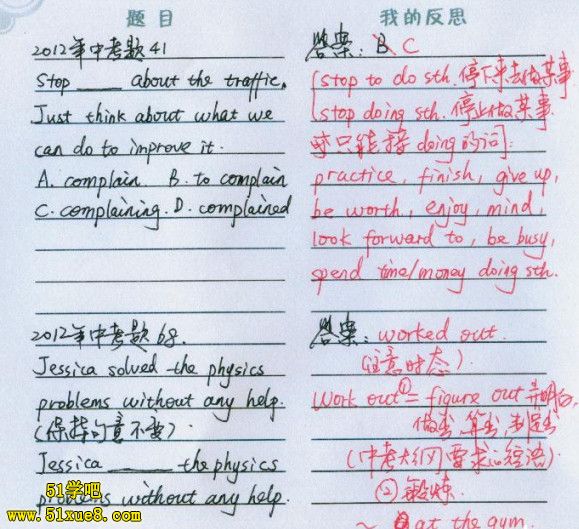 题目
2012年中考题41
Stop ____ about the traffic.
Just think about what we
can do to improve it.
A. complain. B. to complain
C. complaining. D. complained
2012年中考题 68.
Jessica solved the physics
problems without any help.
(保持句意不变)
Jessica ______ the physics
problems without any help.
我的反思
答案: B C
stop to do sth. 停下来去做某事
stop doing sth. 停止做某事
只能接 doing的词:
practice, finish, give up,
be worth, enjoy, mind,
look forward to, be busy,
spend time/money doing sth.
答案: worked out.
(注意时态).
Work out ① = figure out 弄明白,
做出, 算出, 制定出
(中考大纲要求的短语)
② 锻炼.
~ at the gym.
51学吧
www.51xue8.com